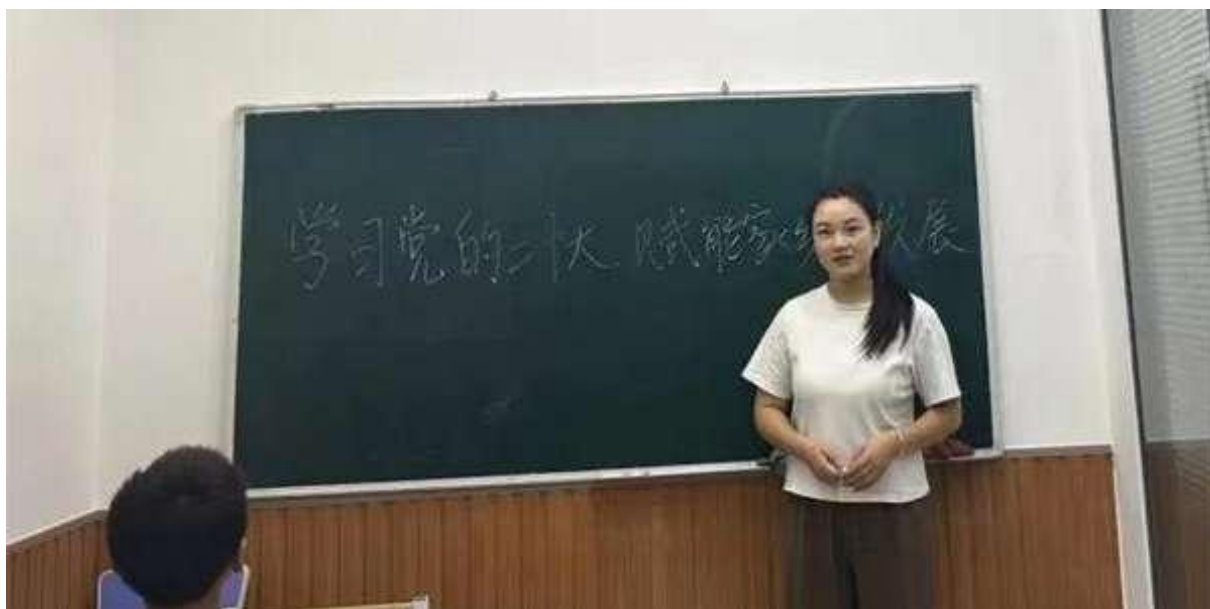 学习党的二十大 赋能家发展